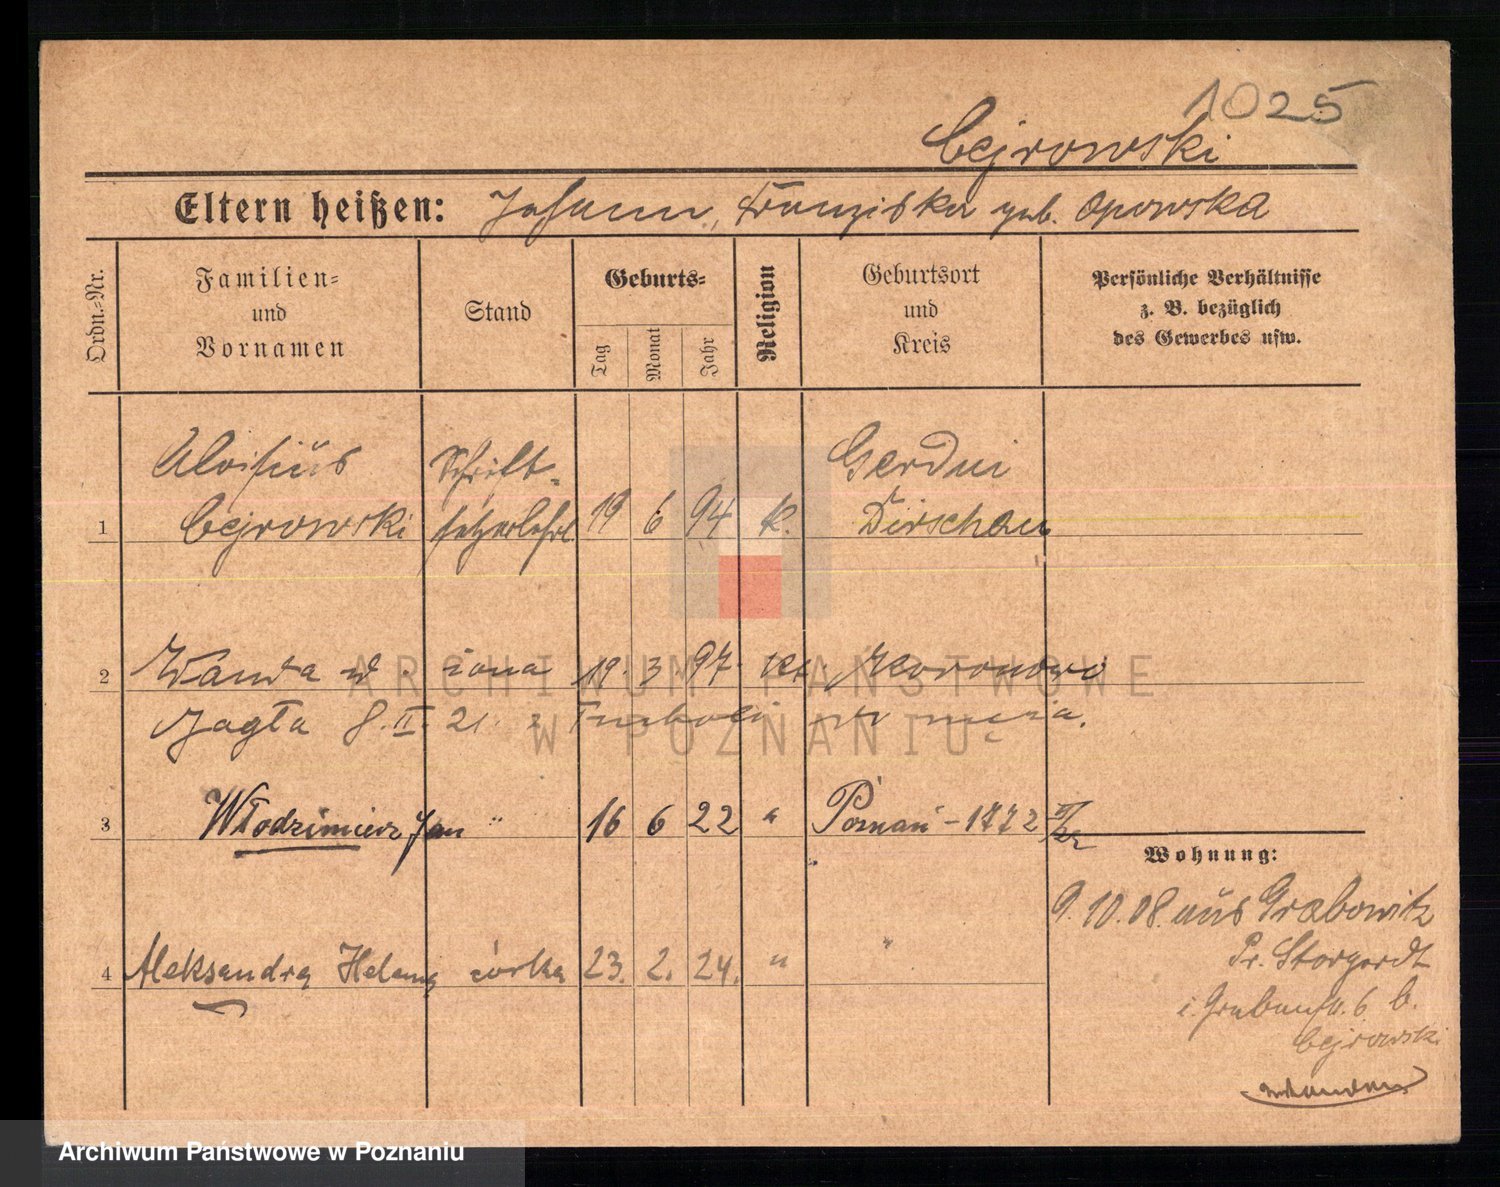 1025
Cejrowski
Eltern heißen: Johann, Franziska geb. Opowska
Ordn.=Nr.
Familien=
und
Vornamen
Stand
Geburts=
Tag
Monat
Jahr
Religion
Geburtsort
und
Kreis
Persönliche Verhältnisse
z. B. bezüglich
des Gewerbes usw.
Aloisius Schrift= Gerdin
1 Cejrowski setzerlehrl 19 6 94 k. Dirschau
2 Wanda z d. żona 19. 3. 97. kt. Koronowo
Jagła 8. II. 21. z męża.
3 Włodzimierz Jan " 16 6 22 " Poznań - 1772
4 Aleksandra Helena córka 23. 2. 24. " "
Wohnung:
9. 10. 08. aus Grabowitz
Pr. Stargardt
i. Grabenstr. 6 b.
Cejrowski
ARCHIWUM PAŃSTWOWE
W POZNANIU
Archiwum Państwowe w Poznaniu